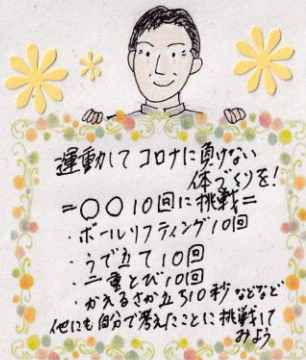 運動して コロナに負けない
体づくりを!
=○○10回に挑戦=
・ボールリフティング10回
・うで立て10回
・二重とび10回
・かえるさか立ち10秒 などなど
他にも自分で考えたことに挑戦して
みよう